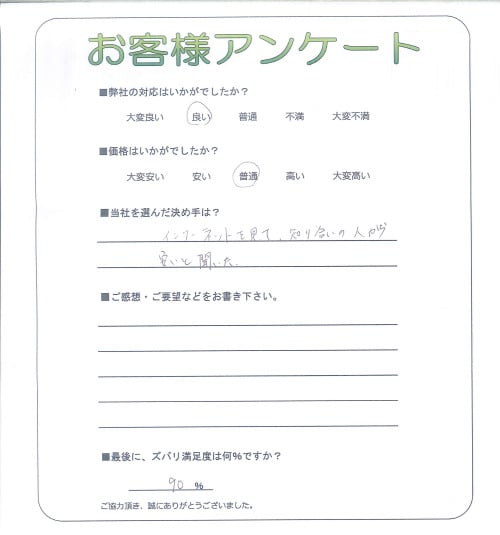 お客様アンケート
■弊社の対応はいかがでしたか?
大変良い 良い 普通 不満 大変不満
■価格はいかがでしたか?
大変安い 安い 普通 高い 大変高い
■当社を選んだ決め手は?
インターネットを見て、知り合いの人から
安いと聞いた。
■ご感想・ご要望などをお書き下さい。
■最後に、ズバリ満足度は何%ですか?
90 %
ご協力頂き、誠にありがとうございました。